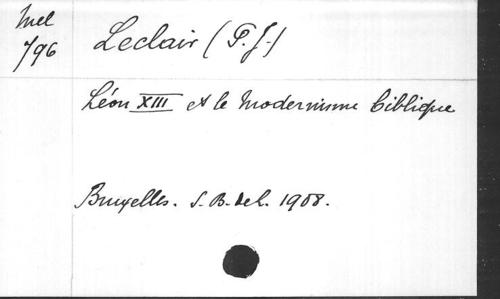 Mel
796
Leclair (P.J.)
Léon XIII et le Modernisme biblique
Bruxelles. S. B. Lel. 1908.